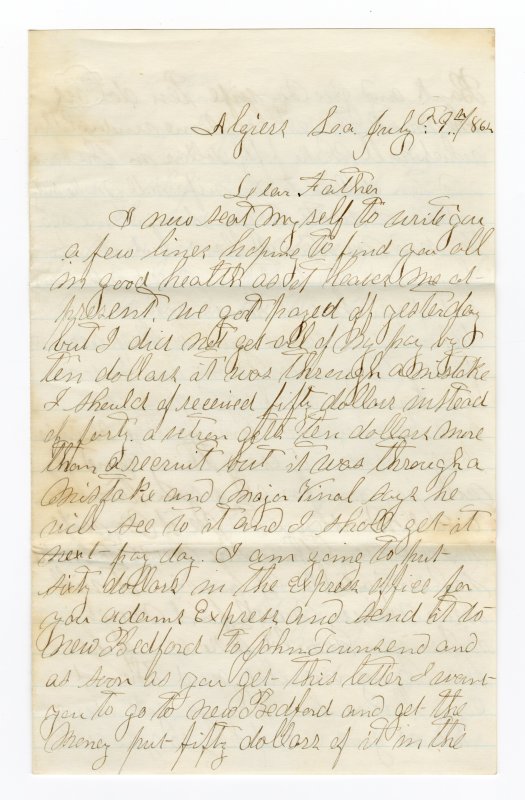 Algiers La. July 9th /86
Dear Father
I now seat myself to write you
a few lines hoping to find you all
in good health as et leaves me at
present. we got payed off yesterday
but I did not get all of my pay by
ten dollars it was through a mistake
I should of received fifty dollars instead
of forty. a vetren gets ten dollars more
than a recruit but it was through a
mistake and Major Vinal says he
will see to it and I shall get it
next pay day. I am going to put
sixty dollars in the express office for
you adams Express and send it to
New Bedford to John Townsend and
as soon as you get this letter I want
you to go to New Bedford and get the
money put fifty dollars of it in the